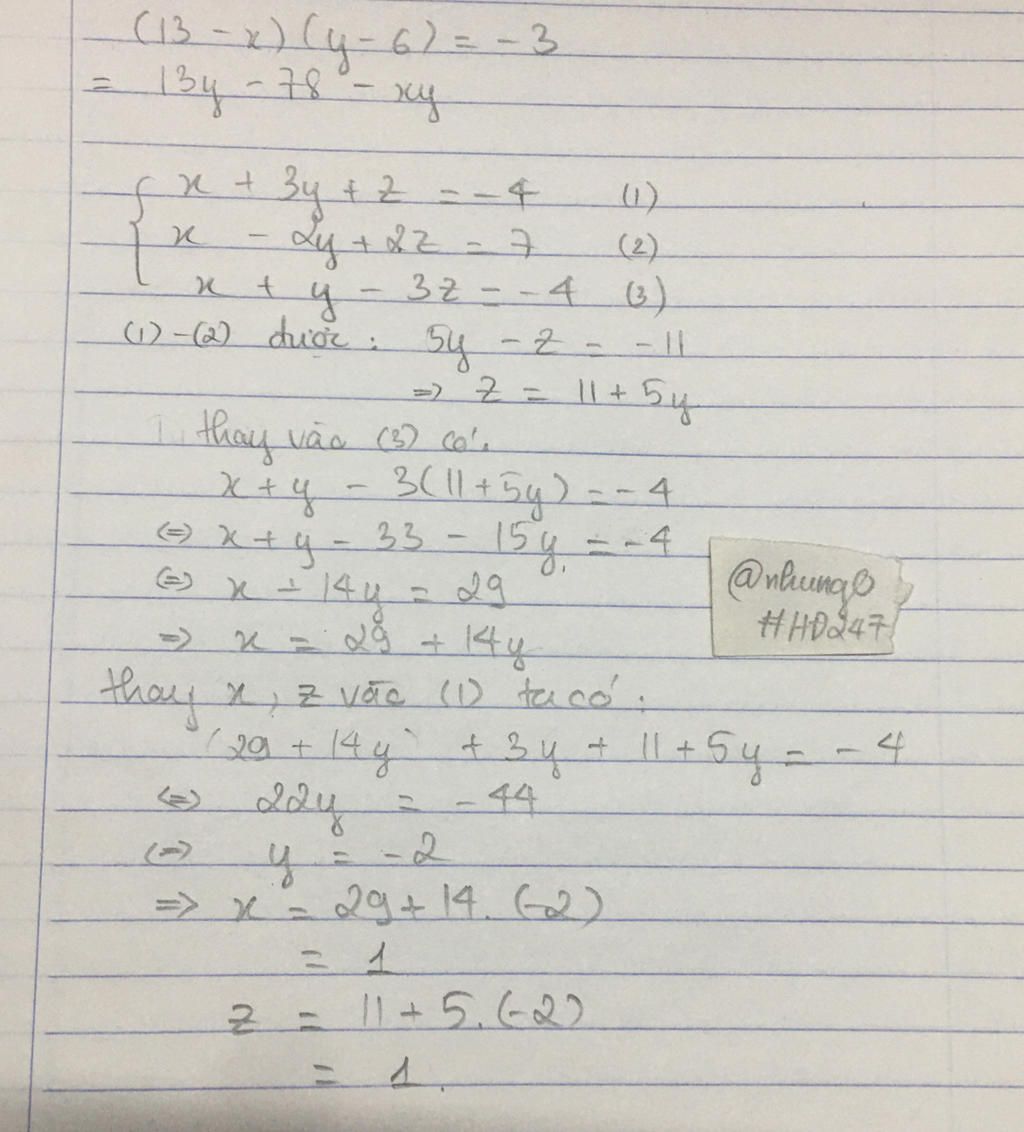 (13 - x) (y - 6) = -3
= 13y - 78 - xy
x + 3y + z = -4 (1)
x - 2y + 2z = 7 (2)
x + y - 3z = -4 (3)
(1)-(2) được: 5y - z = -11
=> z = 11 + 5y
thay vào (3) có:
x + y - 3(11 + 5y) = -4
<=> x + y - 33 - 15y = -4
<=> x - 14y = 29
=> x = 29 + 14y
thay x, z vào (1) ta có:
(29 + 14y) + 3y + 11 + 5y = -4
<=> 22y = -44
<=> y = -2
=> x = 29 + 14. (-2)
= 1
z = 11 + 5. (-2)
= 1.
@nhung8
#HD247